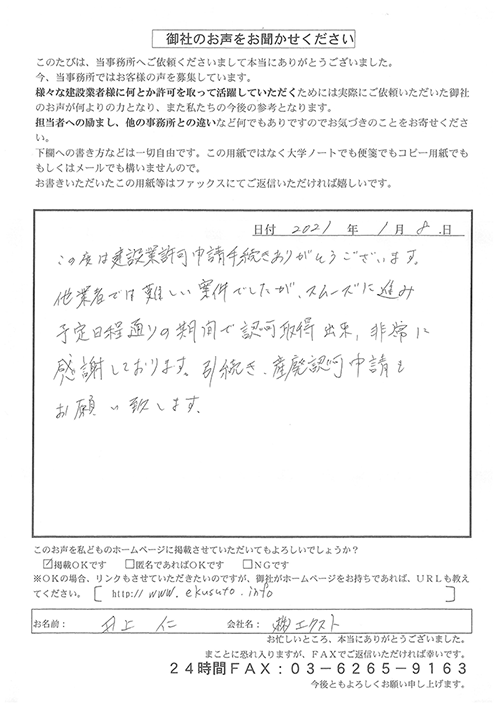 御社のお声をお聞かせください
このたびは、当事務所へご依頼くださいまして本当にありがとうございました。
今、当事務所ではお客様の声を募集しています。
様々な建設業者様に何とか許可を取って活躍していただくためには実際にご依頼いただいた御社
のお声が何よりの力となり、また私たちの今後の参考となります。
担当者への励まし、他の事務所との違いなど何でもありですのでお気づきのことをお寄せくださ
い。
下欄への書き方などは一切自由です。この用紙ではなく大学ノートでも便箋でもコピー用紙でも
もしくはメールでも構いませんので。
お書きいただいたこの用紙等はファックスにてご返信いただければ嬉しいです。
日付 2021 年 1月 8.日
この度は建設業許可申請手続きありがとうございます。
他業者では難しい案件でしたが、スムーズに進み
予定日程通りの期間で認可取得出来、非常に
感謝しております。引続き、産廃認可申請も
お願い致します。
このお声を私どものホームページに掲載させていただいてもよろしいでしょうか？
☑掲載OKです □匿名であればOKです □NGです
※OKの場合、リンクもさせていただきたいのですが、御社がホームページをお持ちであれば、URLも教え
てください。[ http://www.ekusuto.info ]
お名前： 井上 仁 会社名： ㈱エクスト
お忙しいところ、本当にありがとうございました。
まことに恐れ入りますが、FAXでご返信いただければ幸いです。
24時間FAX：03－6265－9163
今後ともよろしくお願い申し上げます。